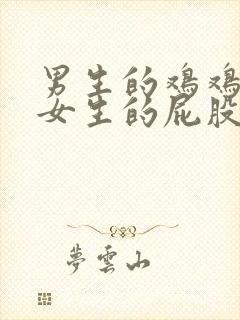 男生的鸡鸡
女生的屁股
夢雲山